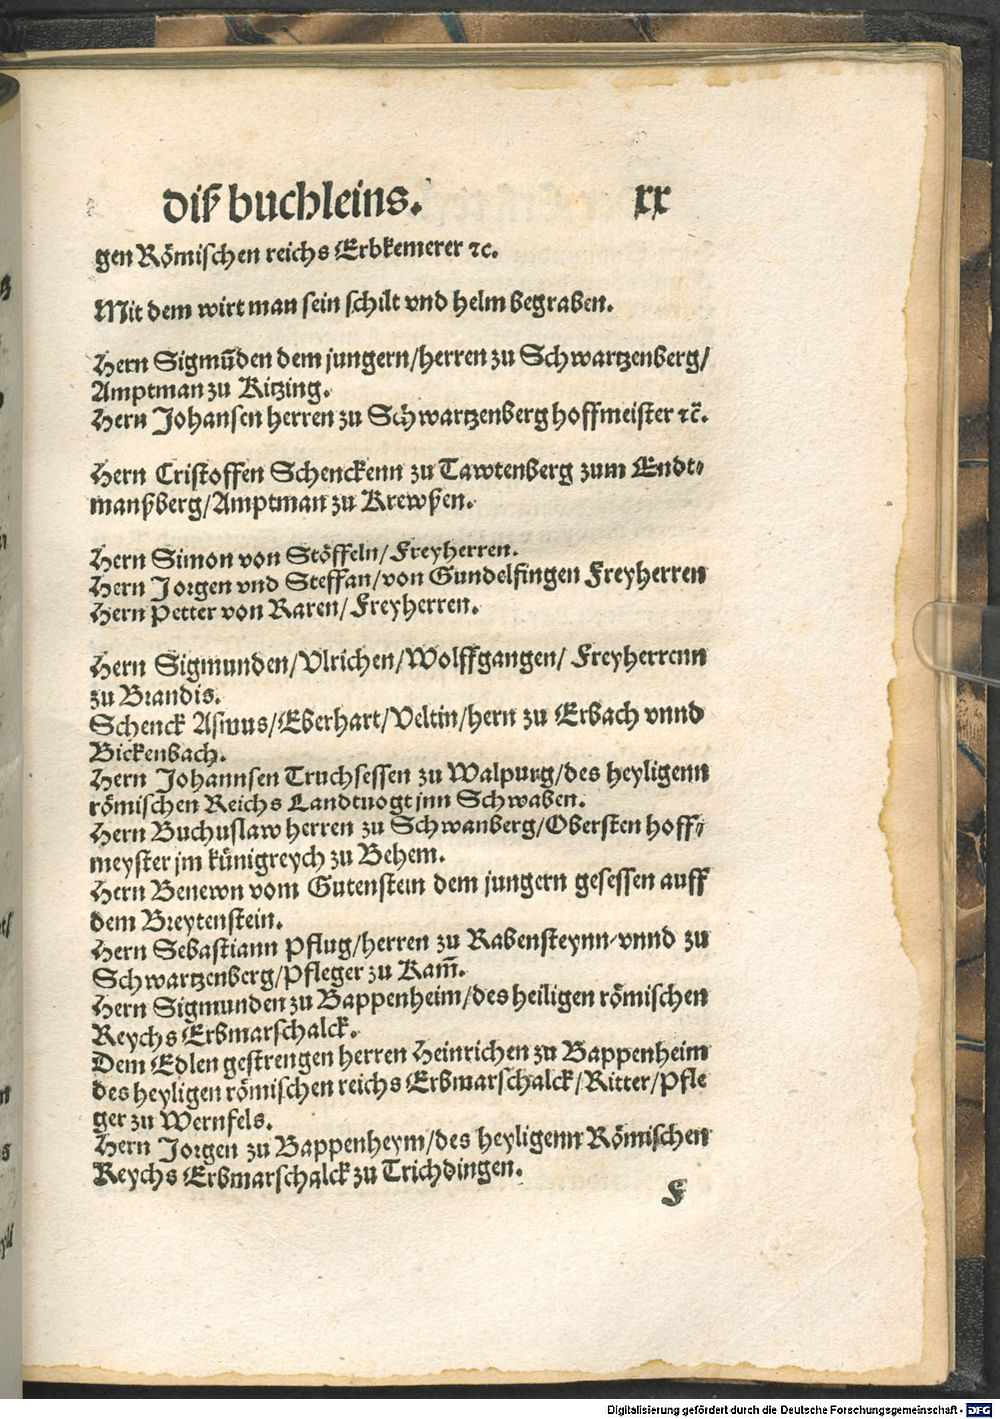 diß buchleins. xx
gen Römischen reichs Erbkemerer ꝛc.
Mit dem wirt man sein schilt vnd helm begraben.
Hern Sigmūden dem jungern/herren zu Schwartzenberg/
Amptman zu Kitzing.
Hern Johansen herren zu Schwartzenberg hoffmeister ꝛc̄.
Hern Cristoffen Schenckenn zu Tawtenberg zum Endt⸗
manßberg/Amptman zu Krewßen.
Hern Simon von Stöffeln/Freyherren.
Hern Jorgen vnd Steffan/von Gundelfingen Freyherren
Hern Petter von Raren/Freyherren.
Hern Sigmunden/Vlrichen/Wolffgangen/ Freyherrenn
zu Brandis.
Schenck Asmus/Eberhart/Veltin/hern zu Erbach vnnd
Bickenbach.
Hern Johannsen Truchsessen zu Walpurg/des heyligenn
römischen Reichs Landtuogt jnn Schwaben.
Hern Buchuslaw herren zu Schwanberg/Obersten hoff⸗
meyster jm künigreych zu Behem.
Hern Benewn vom Gutenstein dem jungern gesessen auff
dem Breytenstein.
Hern Sebastiann Pflug/herren zu Rabensteynn/vnnd zu
Schwartzenberg/Pfleger zu Kam̄.
Hern Sigmunden zu Bappenheim/des heiligen römischen
Reychs Erbmarschalck.
Dem Edlen gestrengen herren Heinrichen zu Bappenheim
des heyligen römischen reichs Erbmarschalck/Ritter/Pfle
ger zu Wernfels.
Hern Jorgen zu Bappenheym/des heyligenn Römischen
Reychs Erbmarschalck zu Trichdingen.
F
Digitalisierung gefördert durch die Deutsche Forschungsgemeinschaft - DFG